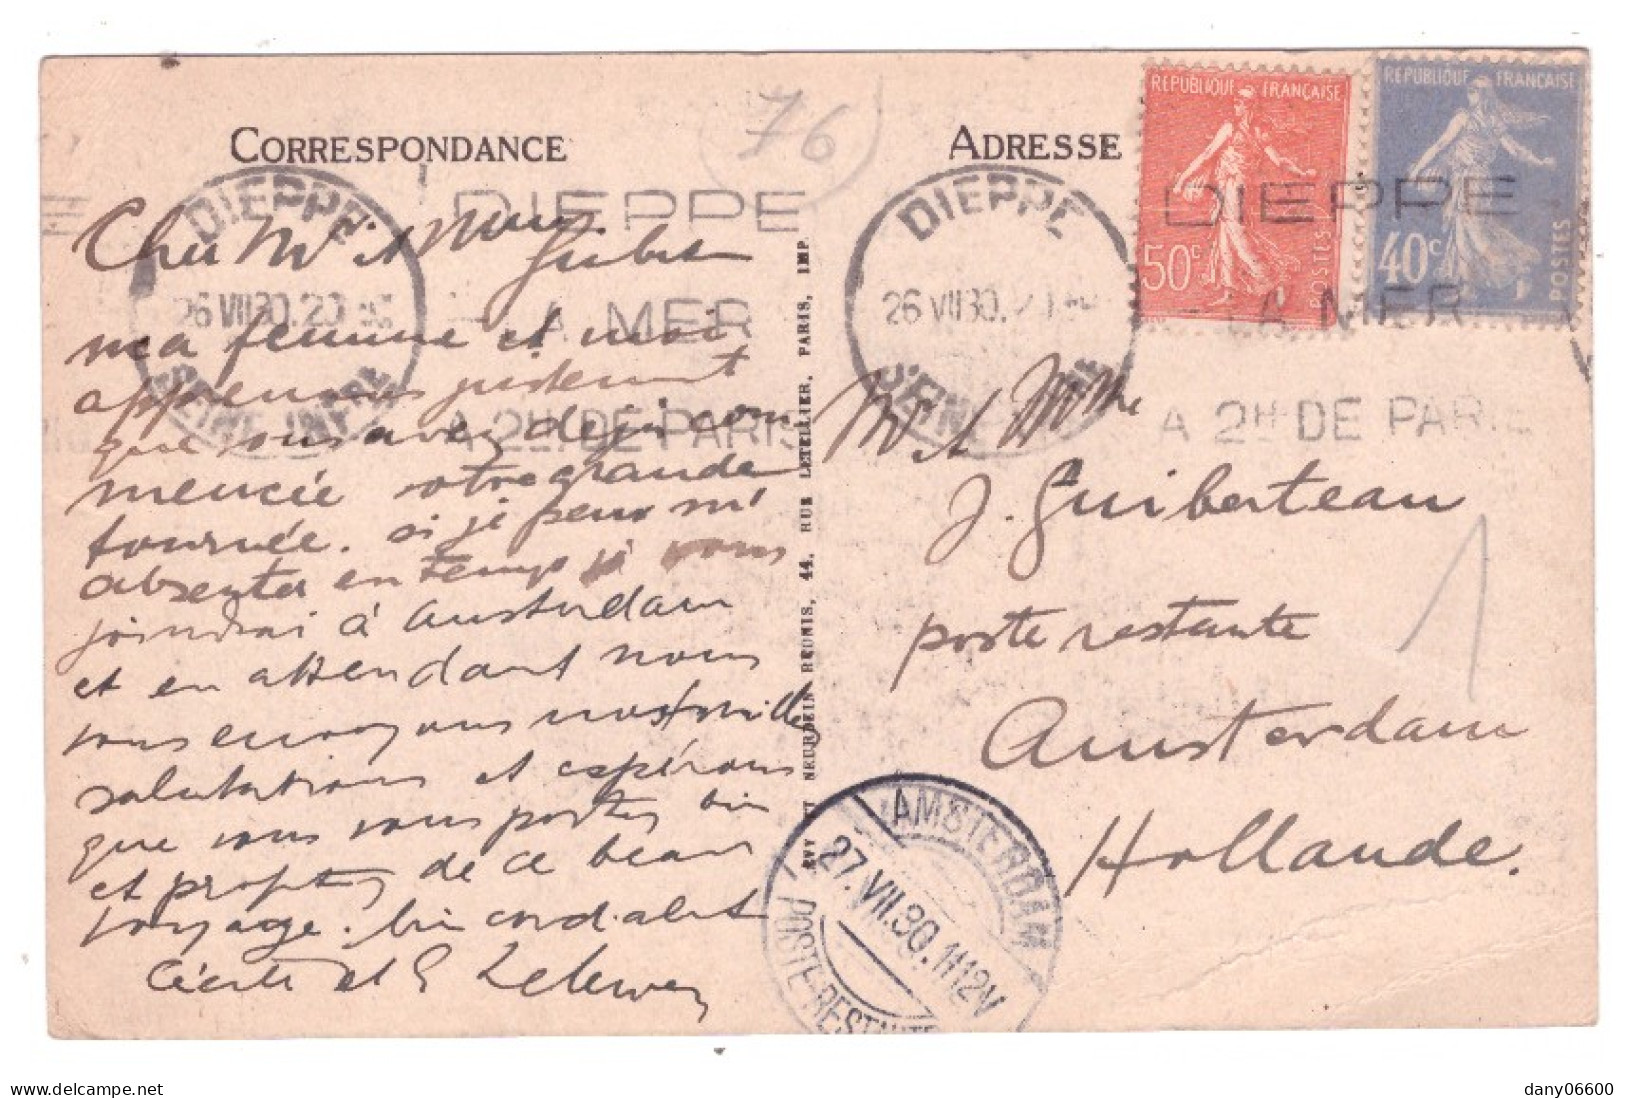 CORRESPONDANCE
ADRESSE
76
REPUBLIQUE FRANÇAISE
50c
POSTES
REPUBLIQUE FRANÇAISE
40c
POSTES
DIEPPE
26 VII 30.20
SEINE INFRE
DIEPPE
LA MER
A 2H DE PARIS
DIEPPE
26 VII 30.
DIEPPE
LA MER
A 2H DE PARIS
Cher Mr et Mme
Guibert
ma femme et moi
apprenons justement
que vous avez déjà com
mencée votre grande
tournée. si je peux m'
absenter en temps je vous
joindrai à Amsterdam
et en attendant nous
vous envoyons nos
salutations et espérons
que vous vous portez bien
et profitez de ce beau
voyage. bien cordialement
et G
LEVY ET NEURDEIN REUNIS, 44, RUE LETELLIER, PARIS, IMP.
Mr et Mme
J. Guiberteau
poste restante
Amsterdam
Hollande.
1
AMSTERDAM
27.VII.30.1112V
POSTE-RESTANTE
www.delcampe.net
dany06600